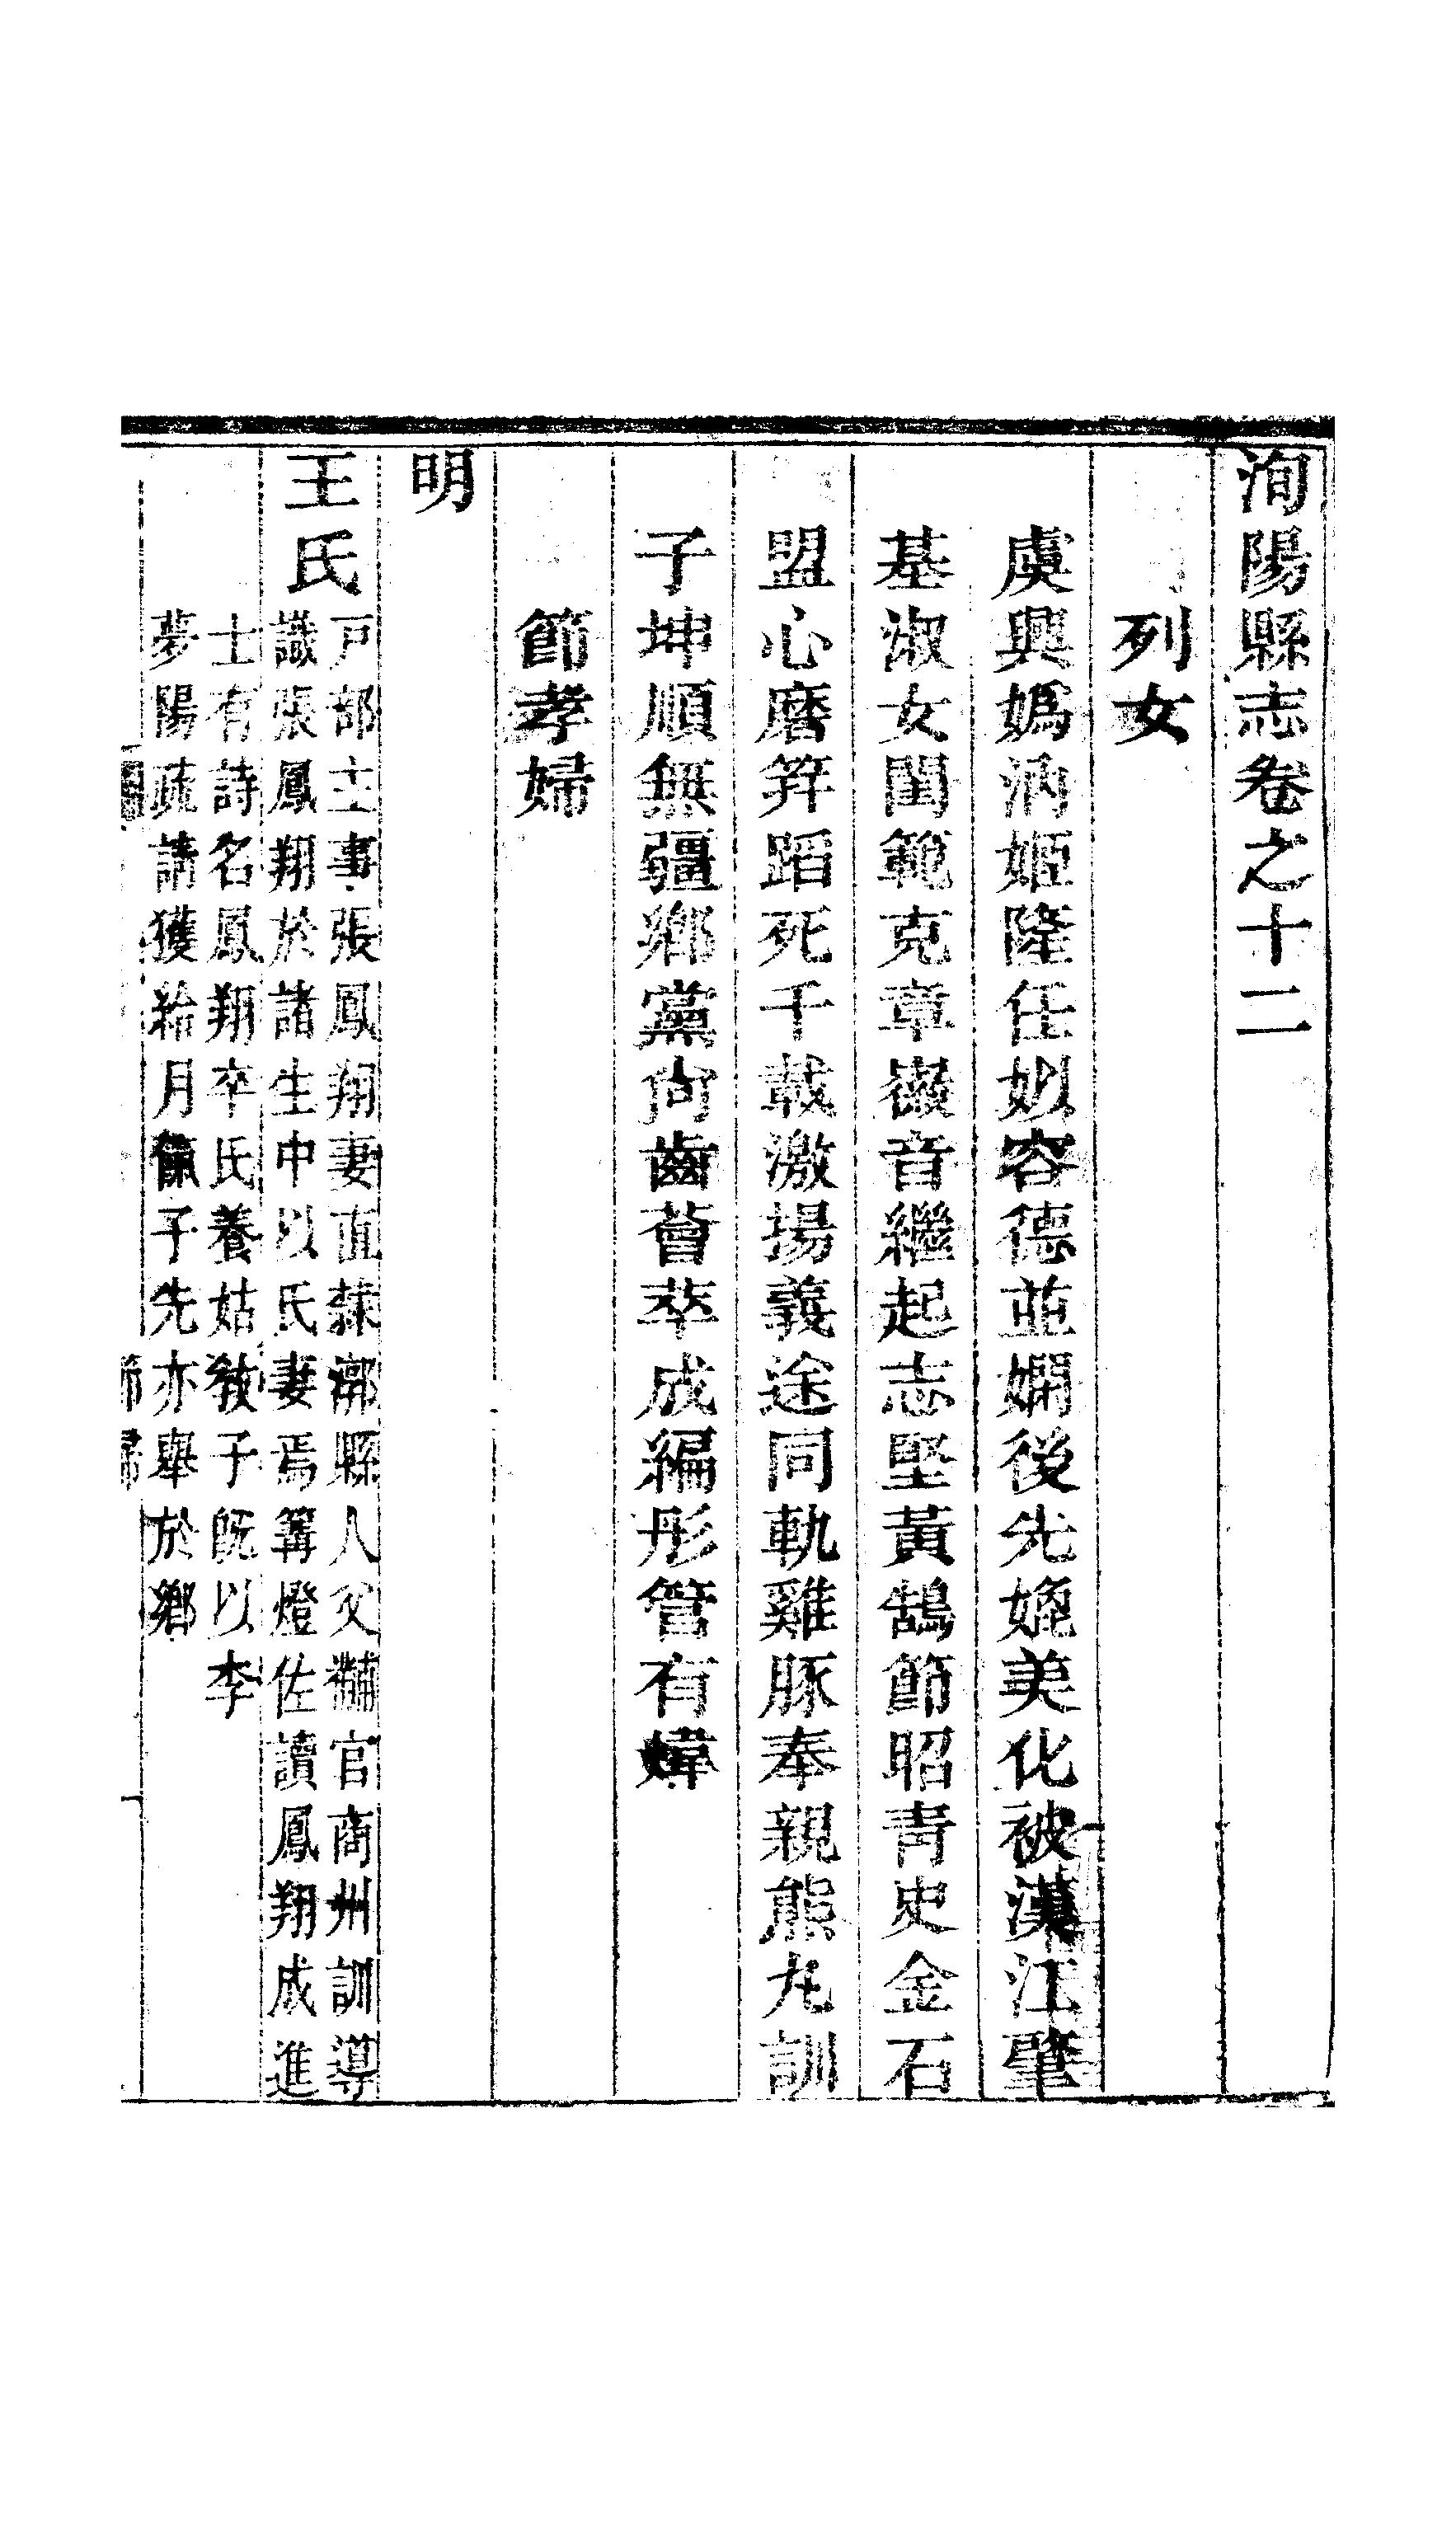 洵陽縣志卷之十二
列女
虞興嬀汭姬隆任姒容德並嫻後先媲美化被漢江肇
基淑女閨範克章徽音繼起志堅黃鵠節昭青史金石
盟心磨笄蹈死千載激揚義途同軌雞豚奉親熊丸訓
子坤順無疆鄉黨尙齒薈萃成編彤管有煒
節孝婦
明
王氏
戸部主事張鳳翔妻直隸漷縣人父黼官商州訓導
識張鳳翔於諸生中以氏妻焉篝燈佐讀鳳翔成進
士有詩名鳳翔卒氏養姑敎子旣以李
夢陽疏請獲給月餼子先亦舉於鄉